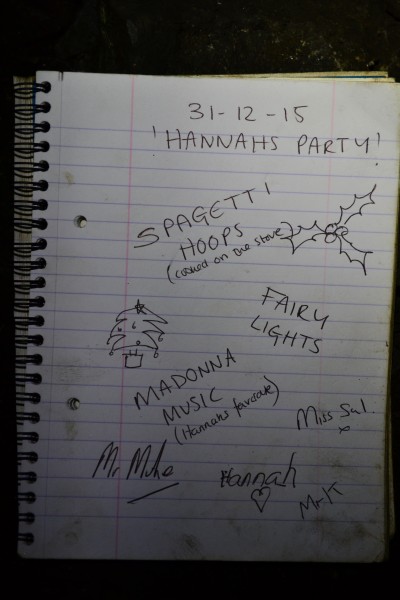 31-12-15
'HANNAHS PARTY'
SPAGETTI
HOOPS
(cooked on the stove)
FAIRY
LIGHTS
MADONNA
MUSIC
(Hannahs favorate)
Miss Sal.
x
Mr Mike
Hannah
Mr K